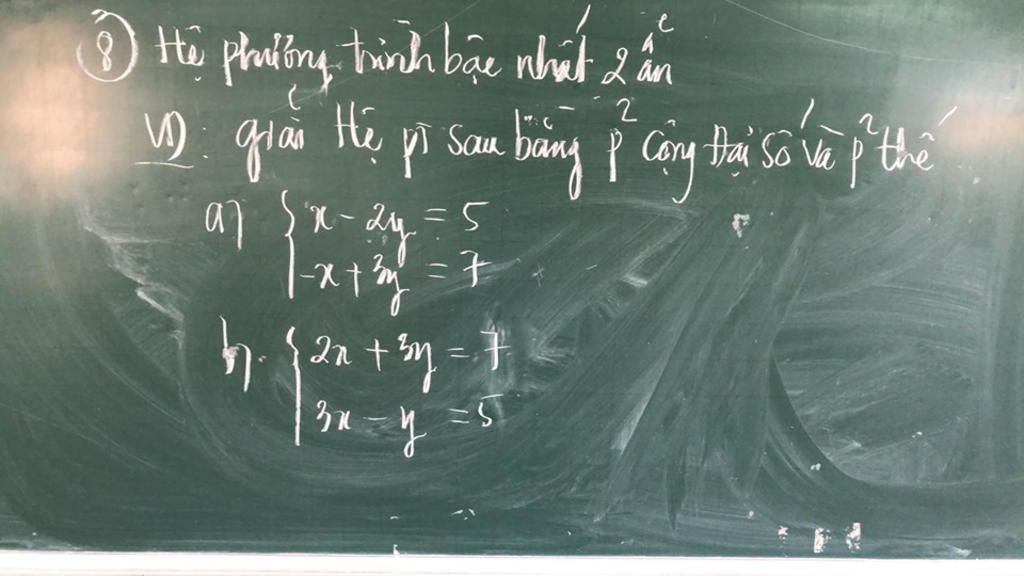 ⑧ Hệ phương trình bậc nhất 2 ẩn
VD: giải Hệ pt sau bằng p² cộng Đại số và p² thế
a) { x - 2y = 5
-x + 3y = 7
b) { 2x + 3y = 7
3x - y = 5